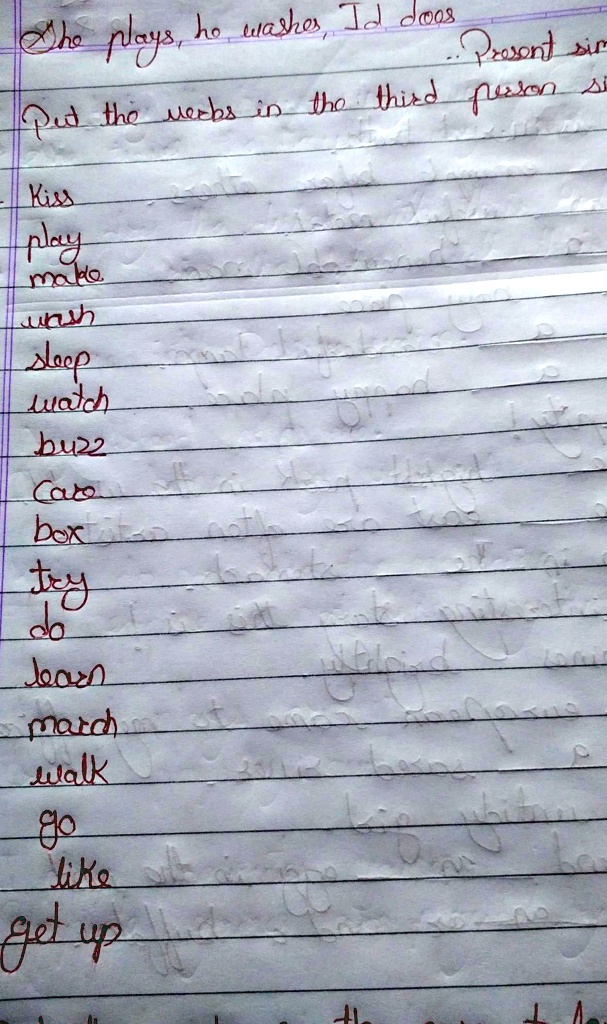 She plays, he washes, Id does
.. Present sim
Put the verbs in the third person si
Kiss
play
make
wash
sleep
watch
buzz
Care
box
try
do
learn
march
walk
go
like
get up